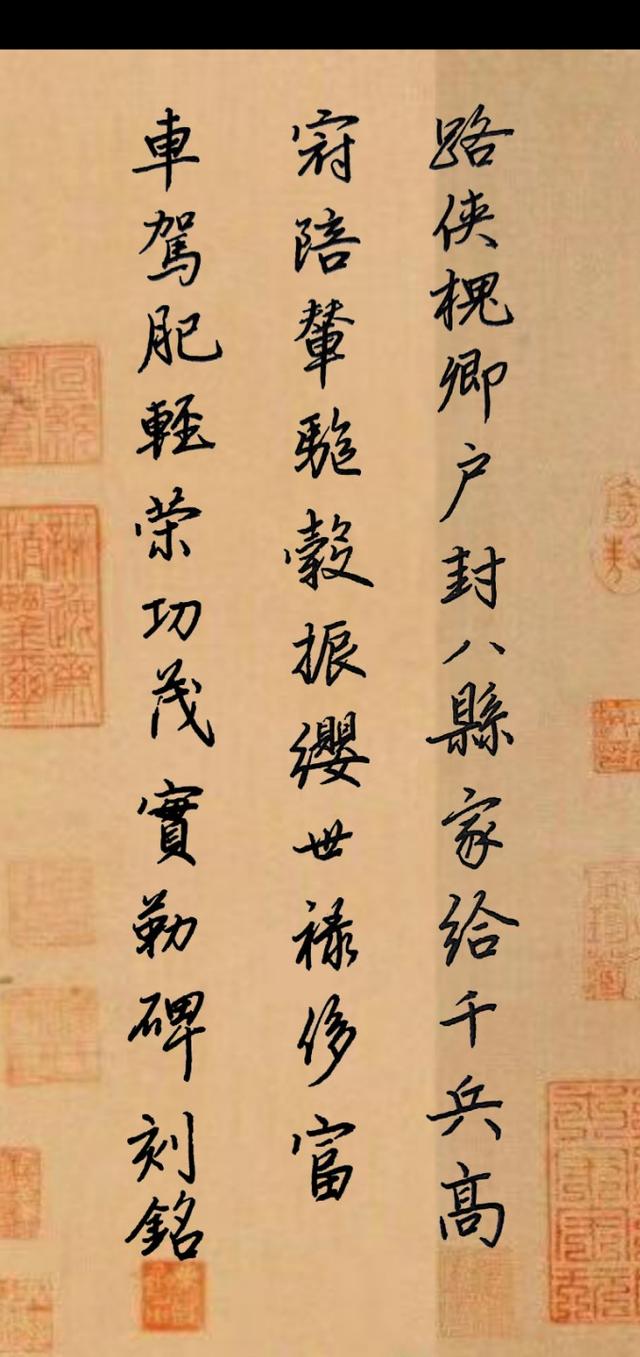 路侠槐卿户封八縣家给千兵高
冠陪輦駈轂振纓世禄侈富
車駕肥輕荣功茂實勒碑刻銘